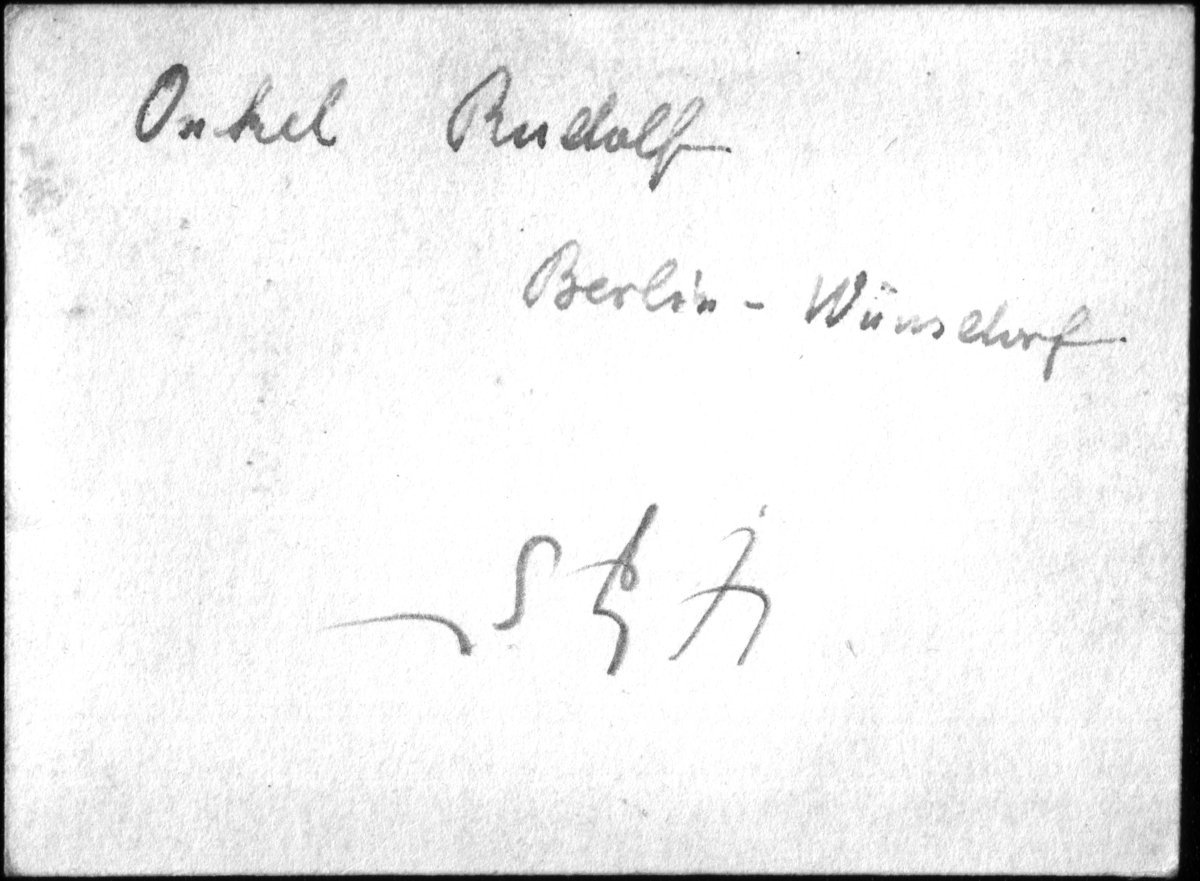 Onkel Rudolf
Berlin - Wünsdorf